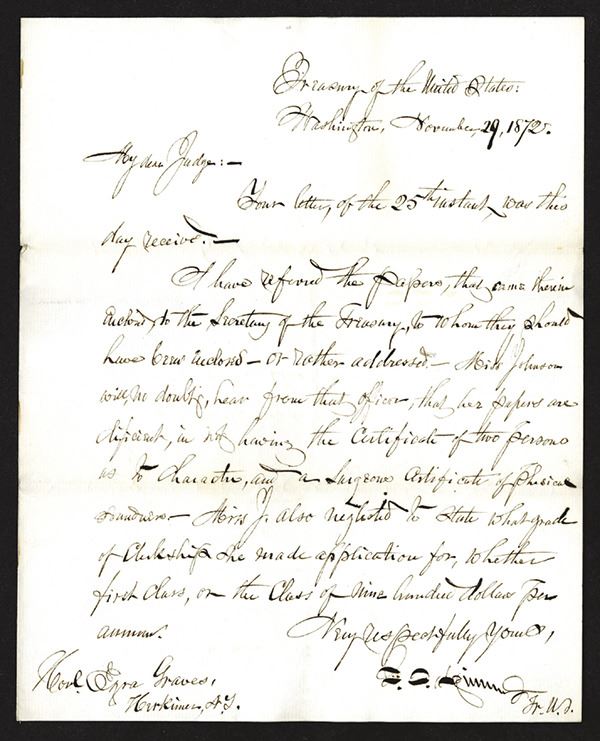 Treasury of the United States:
Washington, November 29, 1872.
My dear Judge:—
Your letter, of the 25th instant, was this
day received.—
I have referred the papers, that came therein
enclosed, to the Secretary of the Treasury, to whom they should
have been enclosed — or rather addressed.— Miss Johnson
will, no doubt, hear from that officer, that her papers are
deficient, in not having the certificate of two persons
as to character, and a Surgeons certificate of Phisical
soundness.— Miss J. also neglected to state what grade
of Clerkship she made application for, whether
first class, or the Class of nine hundred dollars per
annum.
Very respectfully yours,
Honl. Ezra Graves,
Herkimer, N.Y.
Tr. U.S.